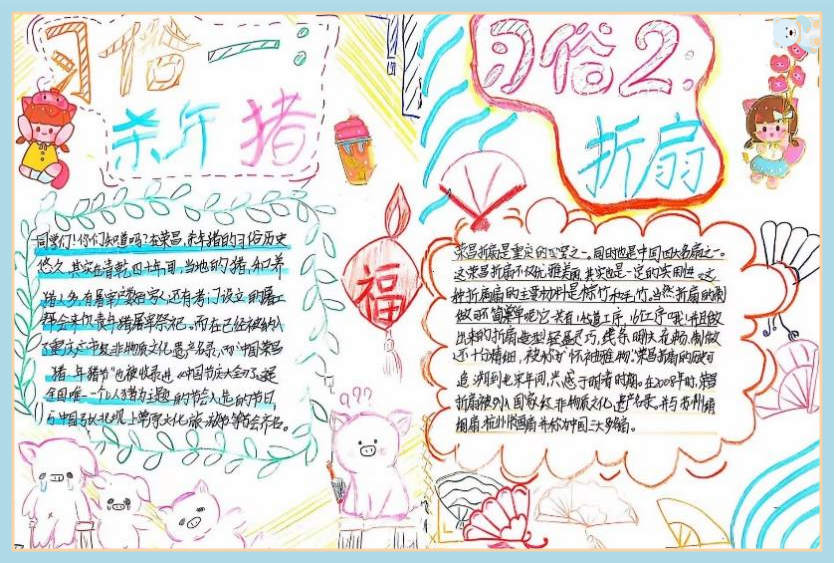 习俗一:
杀年猪
同学们!你们知道吗?在荣昌,杀年猪的习俗历史
悠久,其实在清乾四十年间,当地的猪,和养
猪人多,有屠宰,还有专门设立的屠工
都会来 年猪屠宰祭祀。而在已经被纳入
了重庆市 级非物质文化遗产名录,而"中国荣昌
猪·年猪节"也被收录进《中国节庆大全》了,是
全国唯一一个以猪为主题的节会入选的节日,
与中国 大化 旅 节等节会齐名。
福
???
习俗2:
折扇
荣昌折扇是重庆的 之一。同时也是中国四大名扇之一。
这荣昌折扇不仅优雅美丽,其实也是一定的实用性。这
种折扇扇的主要材料是棕竹和毛竹。当然折扇的制
做可不简单呢它共有 道工序, 工序哦!并且做
出来的折扇造型轻盈灵巧,线条明快流畅,制做
还十分精细,被称为"怀袖雅物"。荣昌折扇的历史可
追溯到北宋年间,兴盛于明者时期。在2008年时,荣昌
折扇被列入国家级非物质文化遗产名录。并与苏州绢
扇杭州 扇并称为中国三大名扇。